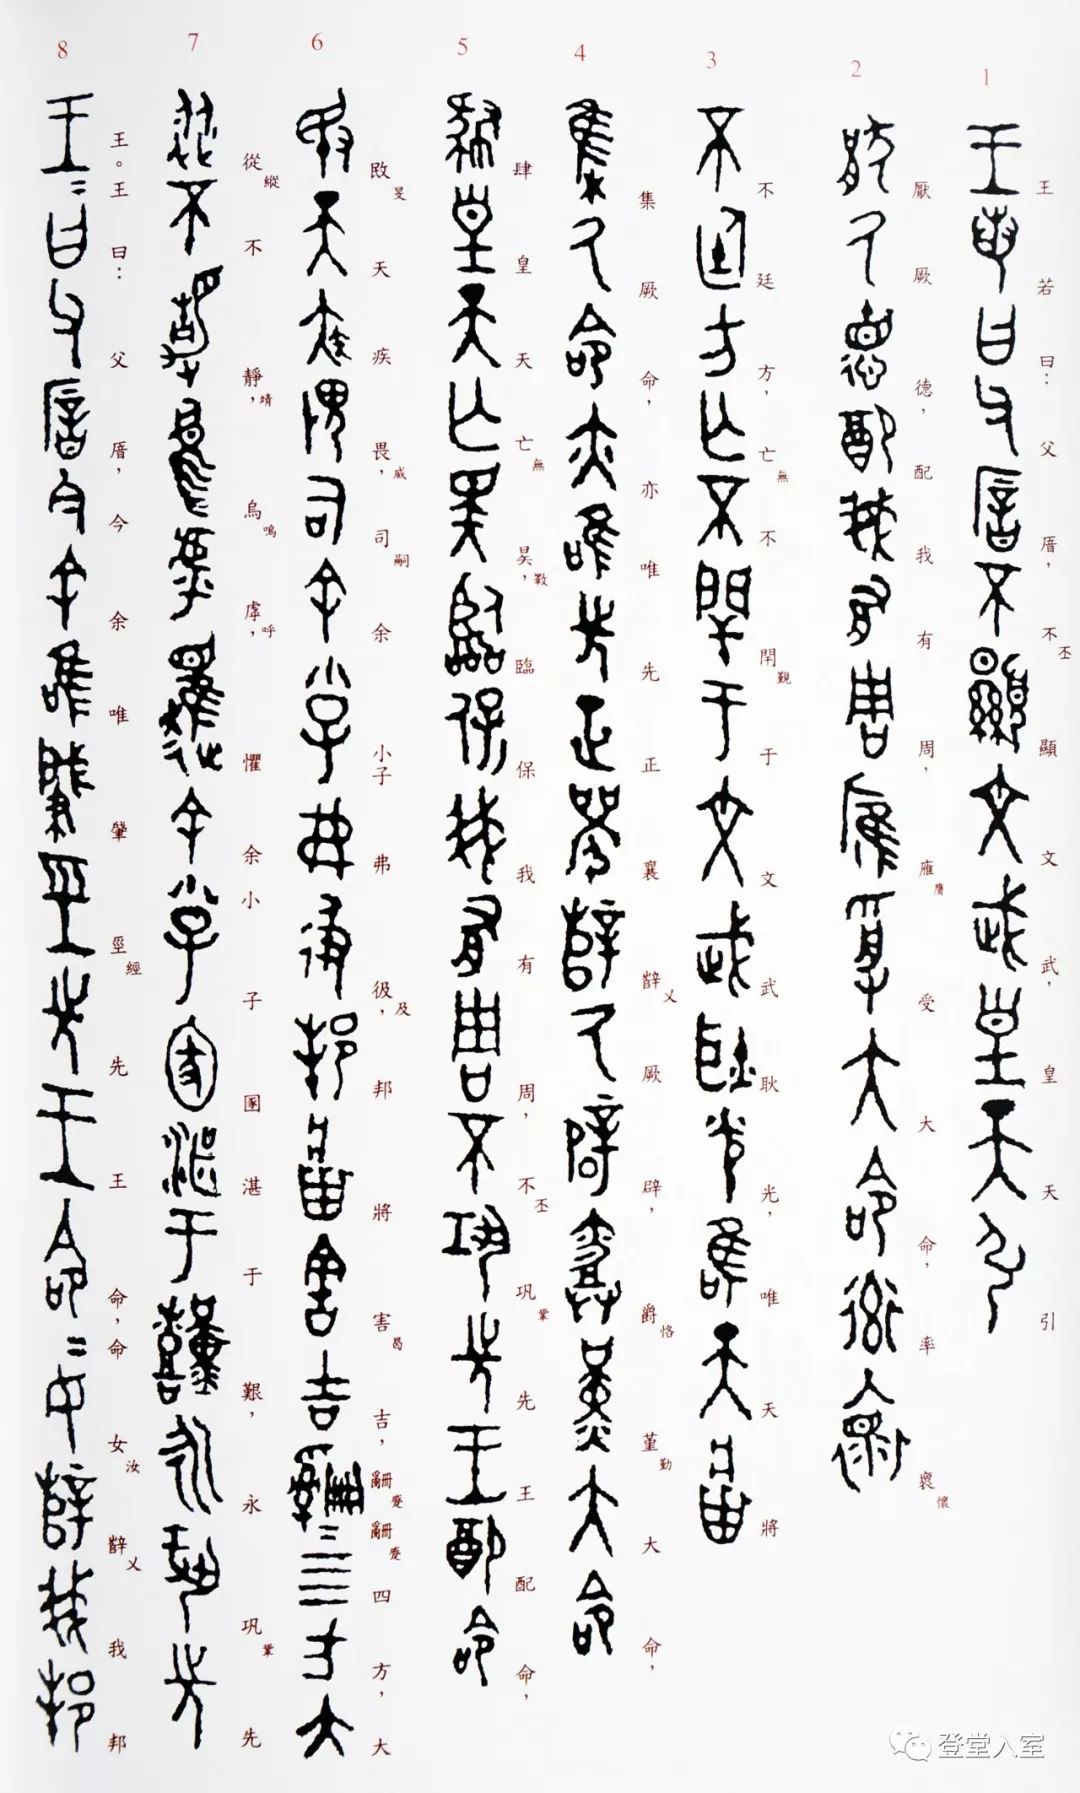 1
王若曰：父厝，不丕顯文武，皇天引
2
厭厥德，配我有周，雁膺受大命，率褱懷
3
不廷方，亡無不閈覲于文武耿光，唯天將
4
集厥命，亦唯先正襄辥乂厥辟，爵恪堇勤大命，
5
肆皇天亡無昊，斁臨保我有周，不丕巩鞏先王配命，
6
敃旻天疾畏，威司嗣余小子弗彶，及邦將害曷吉，四方，大
7
從縱不靜，靖烏嗚虖，呼懼余小子圂湛于艱，永巩鞏先
8
王。王曰：父厝，今余唯肇巠經先王命，命女汝辥乂我邦
登堂入室